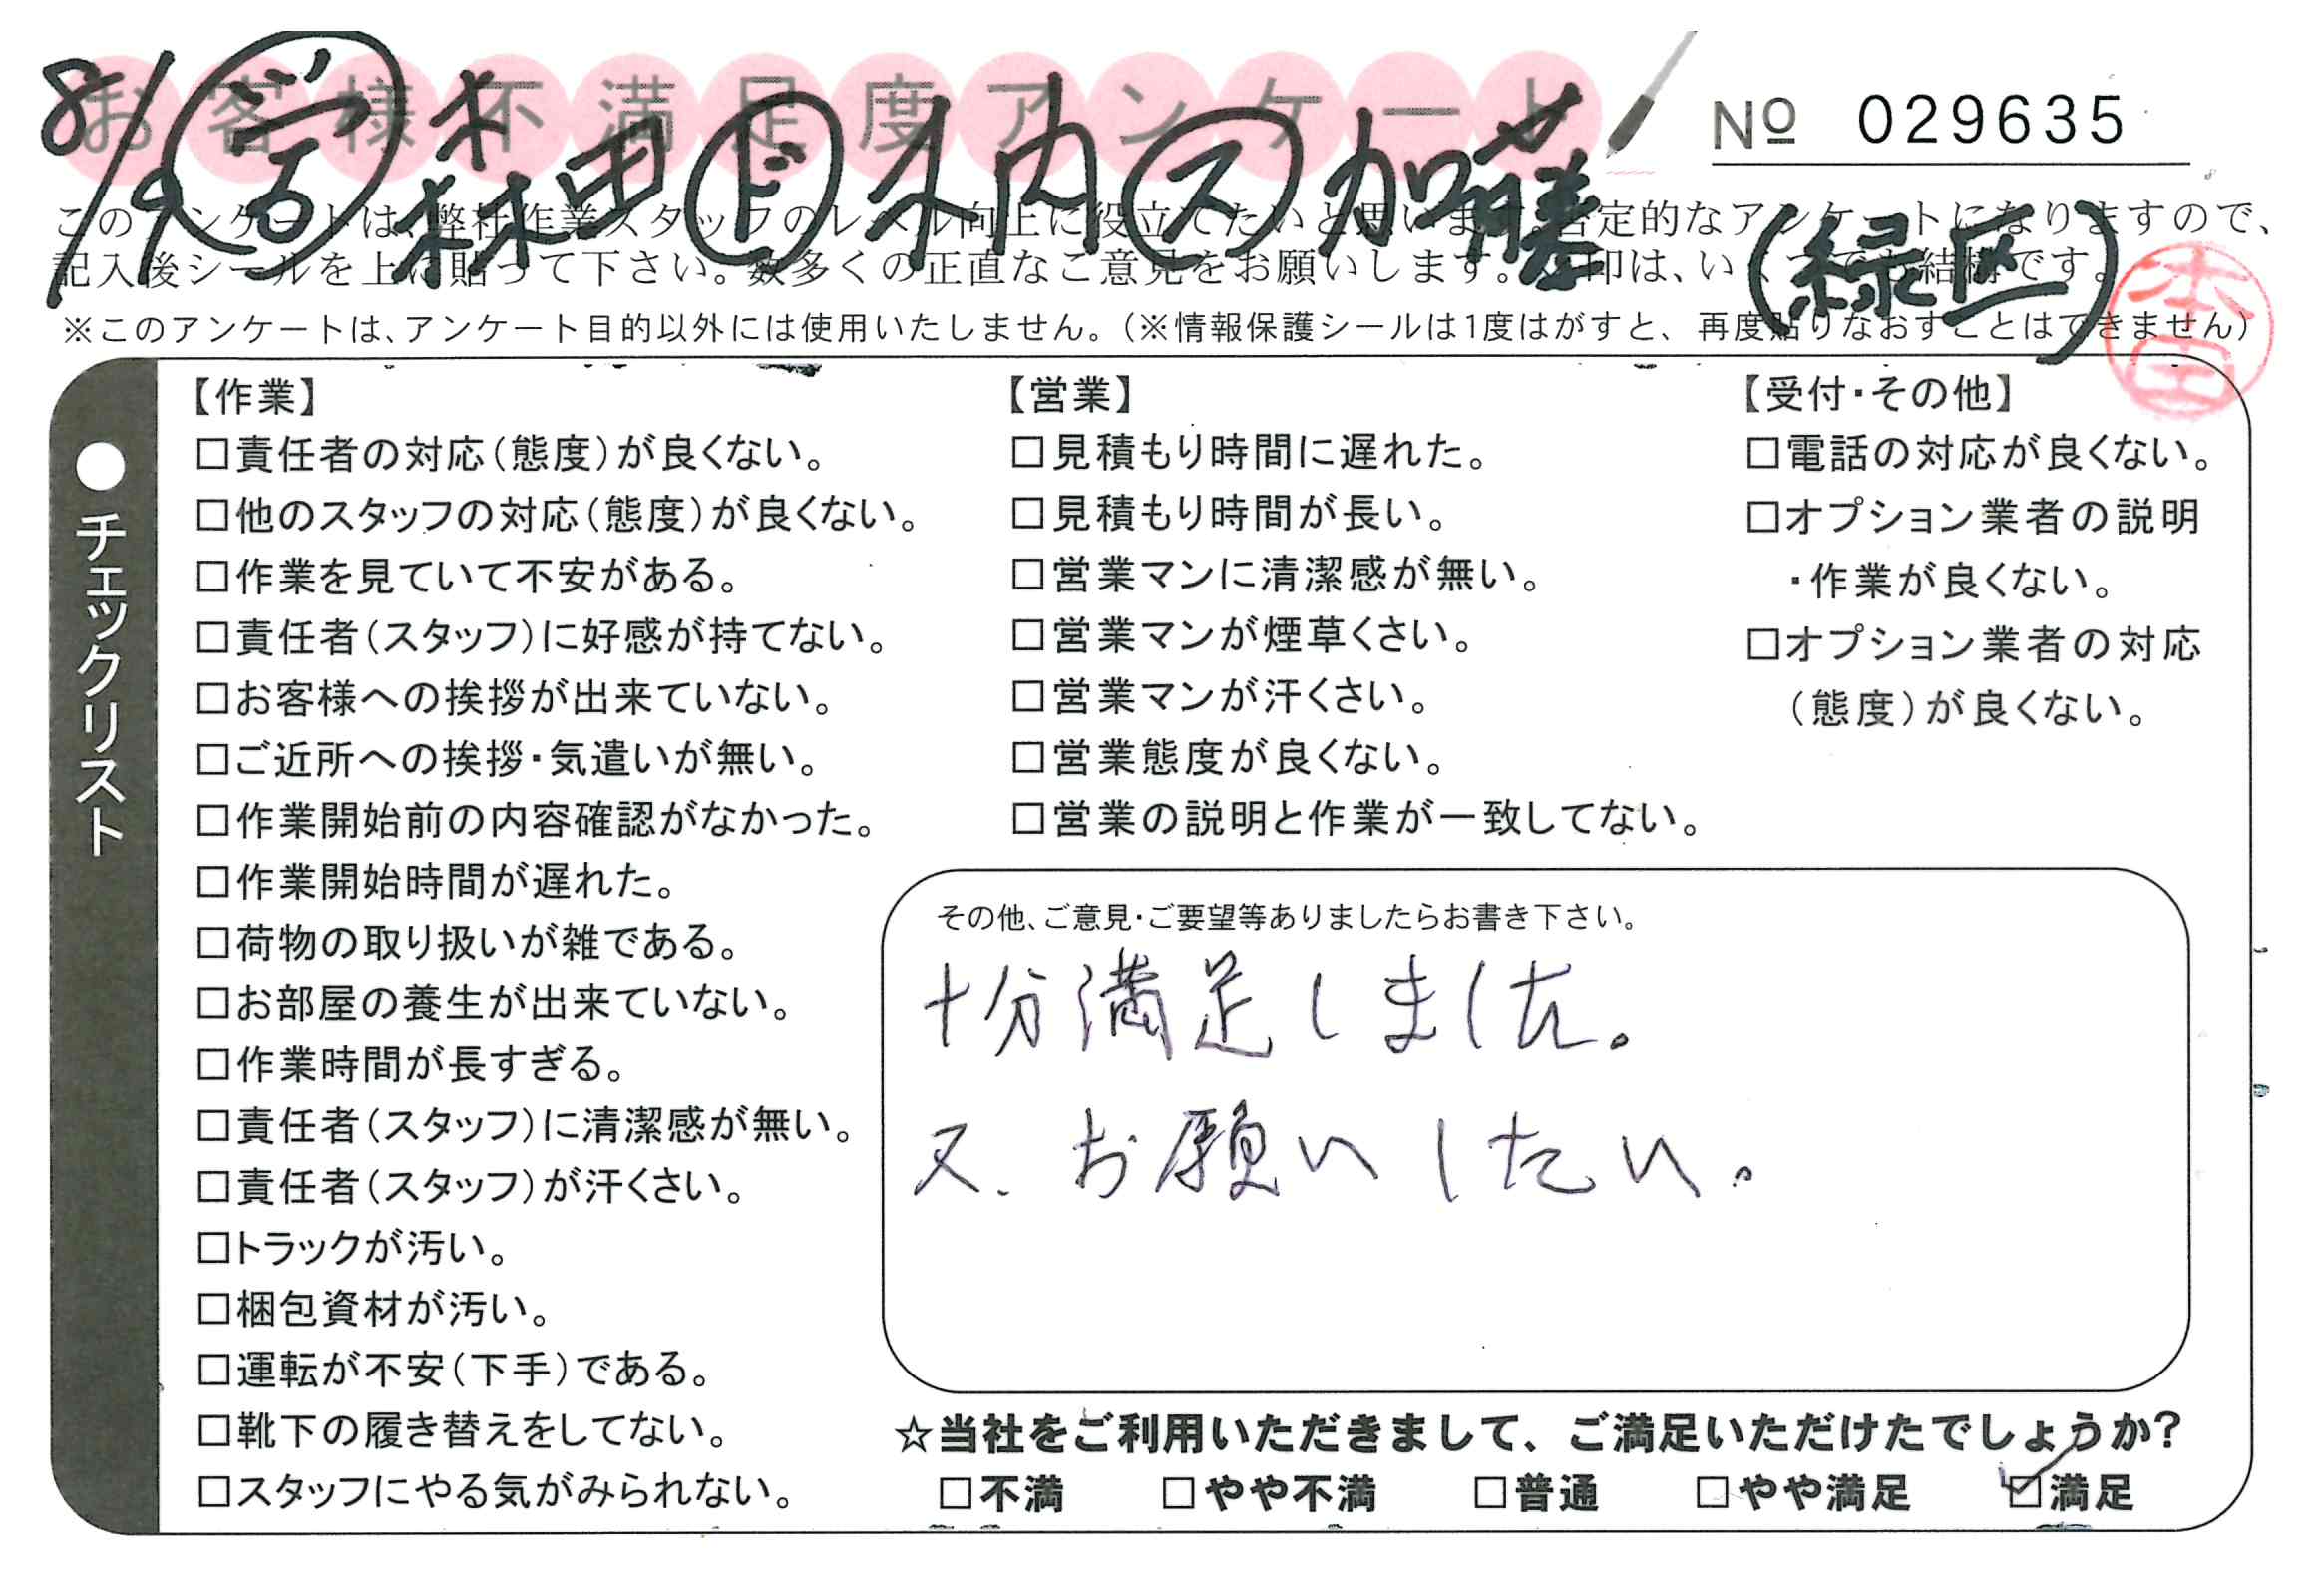 お客様不満足度アンケート
№ 029635
8/9 営 森田 ド 木内 ス 加藤 (緑区)
このアンケートは、弊社作業スタッフのレベル向上に役立てたいと思います。否定的なアンケートになりますので、
記入後シールを上に貼って下さい。数多くの正直なご意見をお願いします。
※このアンケートは、アンケート目的以外には使用いたしません。（※情報保護シールは1度はがすと、再度貼りなおすことはできません）
本田
●チェックリスト
【作業】
□責任者の対応（態度）が良くない。
□他のスタッフの対応（態度）が良くない。
□作業を見ていて不安がある。
□責任者（スタッフ）に好感が持てない。
□お客様への挨拶が出来ていない。
□ご近所への挨拶・気遣いが無い。
□作業開始前の内容確認がなかった。
□作業開始時間が遅れた。
□荷物の取り扱いが雑である。
□お部屋の養生が出来ていない。
□作業時間が長すぎる。
□責任者（スタッフ）に清潔感が無い。
□責任者（スタッフ）が汗くさい。
□トラックが汚い。
□梱包資材が汚い。
□運転が不安（下手）である。
□靴下の履き替えをしてない。
□スタッフにやる気がみられない。
【営業】
□見積もり時間に遅れた。
□見積もり時間が長い。
□営業マンに清潔感が無い。
□営業マンが煙草くさい。
□営業マンが汗くさい。
□営業態度が良くない。
□営業の説明と作業が一致してない。
【受付・その他】
□電話の対応が良くない。
□オプション業者の説明
・作業が良くない。
□オプション業者の対応
（態度）が良くない。
その他、ご意見・ご要望等ありましたらお書き下さい。
十分満足しました。
又、お願いしたい。
☆当社をご利用いただきまして、ご満足いただけたでしょうか？
□不満 □やや不満 □普通 □やや満足 ☑満足